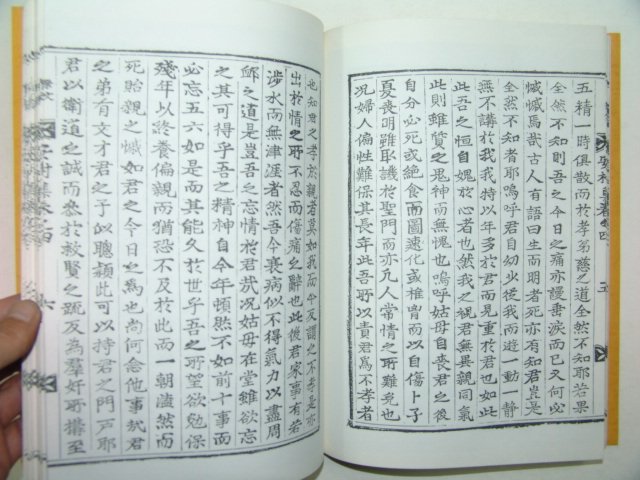 五精一時俱散而於孝弟慈之道全然不知耶若果
全然不知則吾之今日之痛亦謾垂淚而已又何必
慽慽焉哉古人有語曰生而明者死亦有知君豈是
全然不知者耶嗚呼君自幼少從我而遊一動一靜
無不講於我我特以年多於君而見重於君也如此
此吾之恒自媿於心者也然我之視君無異親同氣
此則雖質之鬼神而無愧也嗚呼姑母自喪君之後
自分必死或絶食而圖速化或椎胷以自傷卜子
夏喪明雖取譏於聖門而亦凡人常情之所難免也
况婦人偏性難保其長年此吾所以責君爲不孝者
也知君之孝於親者莫如我而今反謂之不孝是亦
出於情之所不忍而傷痛之辭也此後君家事有若
涉水而無津涯者然吾今衰病似不得氣力以盡周
卹之道是豈吾之忘情於君哉况姑母在堂雖欲忘
之其可得乎吾之精神自今年頓然不如前十事而
必忘五六如是而其能久於世乎吾之所望欲勉保
殘年以終養偏親而猶恐不及於此而一朝溘然而
死貽親之慽如君之今日之爲也尚何念他事哉君
之弟有文才君之子似聰穎此可以持君之門戶耶
君以衛道之誠而參於救賢之疏反爲羣奸所搆至